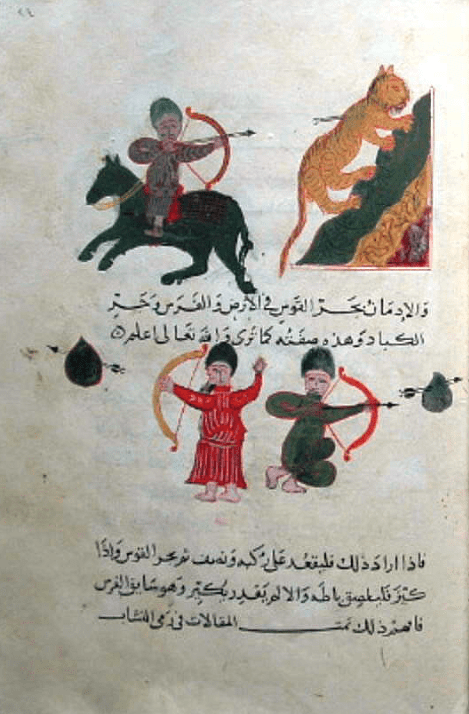 ٢٤
والإدمان بجر القوس في الأرض والفرس وجر
الكباد وهذه صفته كما ترى والله تعالى اعلم
فاذا اراد ذلك فليقعد على ركبه ونصف ثم يجر القوس واذا
كبر فليلصق باطه والا لم يقدر يكبر وهو سايق الفرس
فافهم ذلك تمت المقالات في رمي النشاب